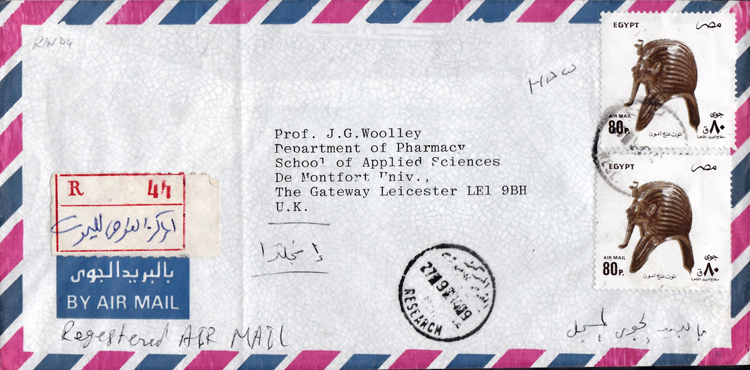 EGYPT مصر
AIR MAIL جوى
80P. ٨٠ق
توت عنخ آمون
EGYPT مصر
AIR MAIL جوى
80P. ٨٠ق
توت عنخ آمون
Prof. J.G.Woolley
Department of Pharmacy
School of Applied Sciences
De Montfort Univ.,
The Gateway Leicester LE1 9BH
U.K.
إنجلترا
R 44
بالبريد الجوى
BY AIR MAIL
Registered AIR MAIL
RESEARCH
بالبريد الجوى المسجل